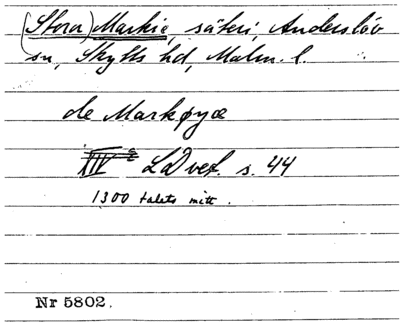 (Stora) Markie, säteri, Anderslöv
sn, Skytts hd, Malm. l.
de Markøyæ
LD vet. s. 44
1300 talets mitt.
Nr 5802.